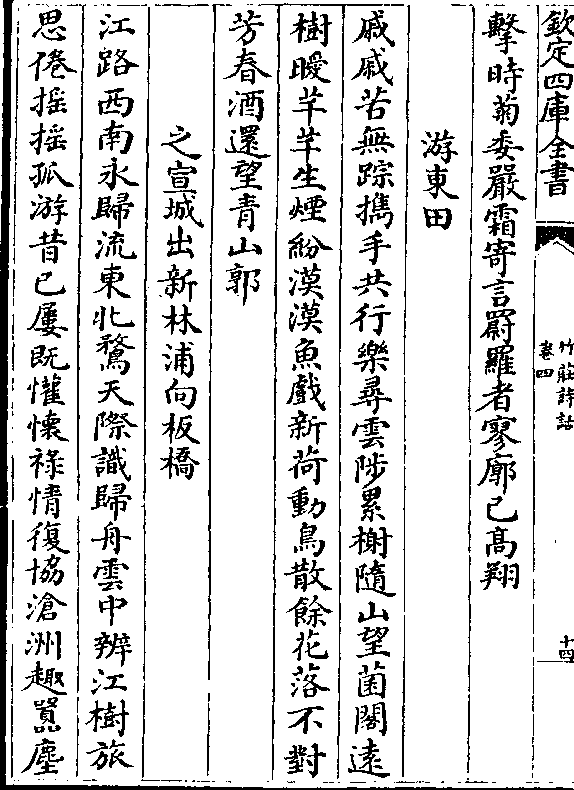 欽定四庫全書
竹莊詩話
卷四
十四
擊時菊委嚴霜寄言罻羅者寥廓已髙翔
游東田
戚戚苦無踪攜手共行樂尋雲陟累榭隨山望菌閣遠
樹曖芊芊生煙紛漠漠魚戲新荷動鳥散餘花落不對
芳春酒還望青山郭
之宣城出新林浦向板橋
江路西南永歸流東北鶩天際識歸舟雲中辨江樹旅
思倦揺揺孤游昔已屢既懽懷禄情復協滄洲趣囂塵